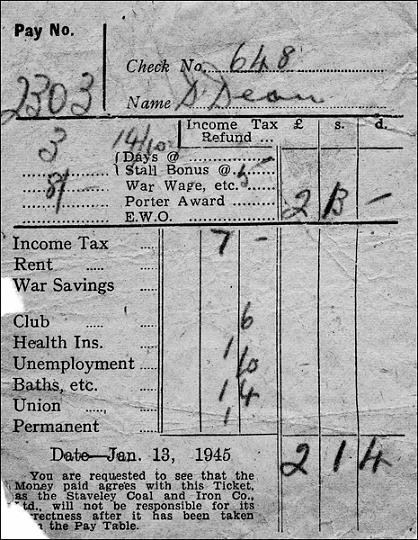 Pay No.
2303
Check No. 648
Name S Dean
Income Tax Refund ... £ s. d.
3 14/10
Days @
Stall Bonus @
8/- War Wage, etc.
Porter Award 2 13 -
E.W.O.
Income Tax .... 7 -
Rent ..... ....
War Savings
Club ..... .... 6
Health Ins. .... 1
Unemployment .... 10
Baths, etc. .... 1 4
Union ....., .... 1
Permanent ....
Date—Jan. 13, 1945 2 1 4
You are requested to see that the
Money paid agrees with this Ticket,
as the Staveley Coal and Iron Co.,
td., will not be responsible for its
rectness after it has been taken
the Pay Table.